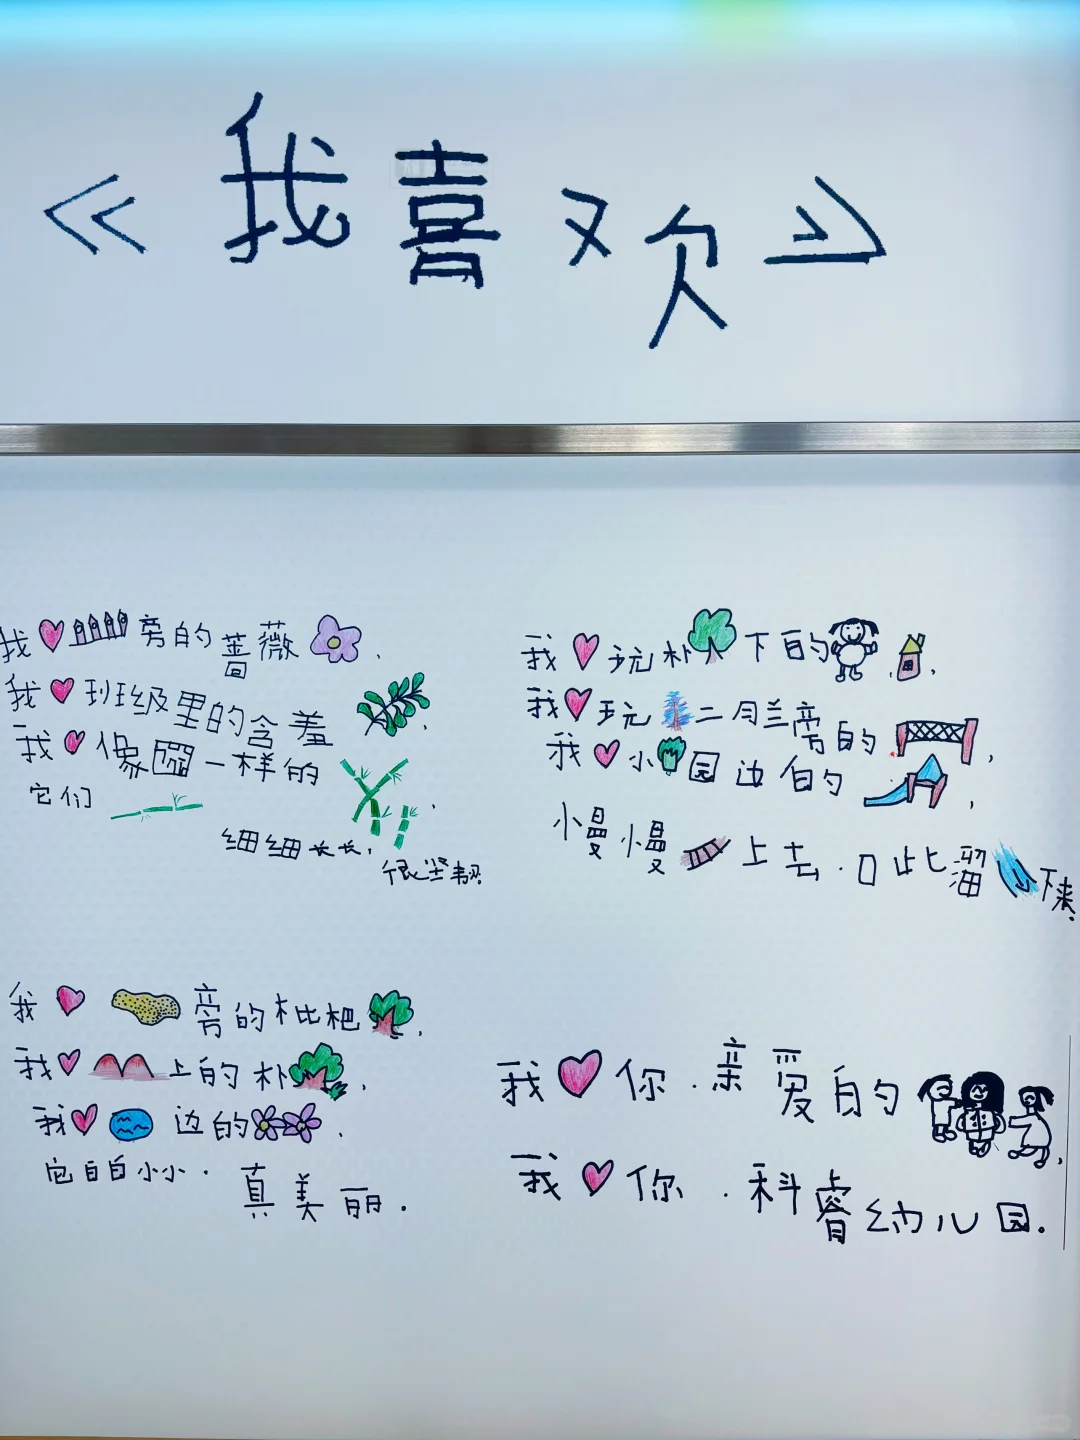 《我喜欢》
我旁的蔷薇,
我班级里的含羞,
我像圆一样的
它们,
细细长长,
很坚韧
我旁的枇杷,
我上的朴,
我边的,
它白白小小.
真美丽.
我玩朴下的,
我玩二月兰旁的,
我小园边的,
慢慢上去.口此溜下来.
我你.亲爱的,
我你.科睿幼儿园.